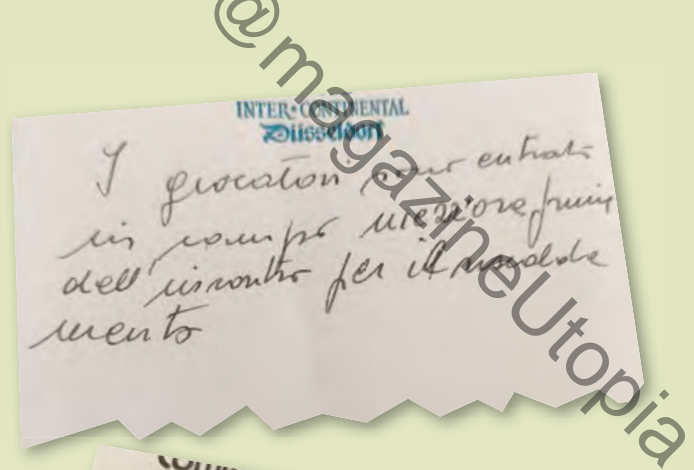 @magazineUtopia
INTER•CONTINENTAL
Düsseldorf
I giocatori sono entrati
in campo mezz'ora prima
dell'incontro per il riscalda
mento